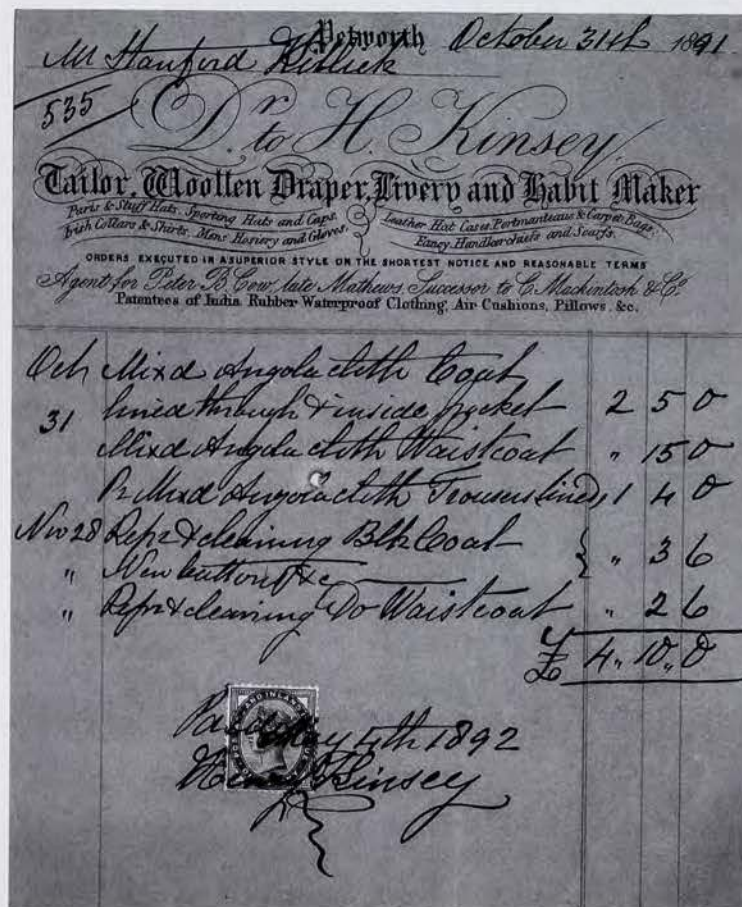 Petworth October 31st 1891
Mr Stanford Killick
535
Dr. to H. Kinsey,
Tailor, Woollen Draper, Livery and Habit Maker
Paris & Stuff Hats, Sporting Hats and Caps. Leather Hat Cases, Portmanteaus & Carpet Bags.
Irish Collars & Shirts, Mens Hosiery and Gloves. Fancy Handkerchiefs and Scarfs.
ORDERS EXECUTED IN A SUPERIOR STYLE ON THE SHORTEST NOTICE AND REASONABLE TERMS
Agent for Peter B. Cow, late Mathews, Successor to C. Mackintosh & Co.
Patentees of India Rubber Waterproof Clothing, Air Cushions, Pillows, &c.
Oct Mixd Angola cloth Coat
31 lined through & inside pocket 2 5 0
Mixd Angola cloth Waistcoat " 15 0
Pr Mixd Angola cloth Trousers lined 1 4 0
Nov 28 Repr & cleaning Blk Coat } " 3 6
" New buttons &c
" Repr & cleaning Do Waistcoat " 2 6
£ 4 " 10 " 0
Paid May 4th 1892
Henry Kinsey